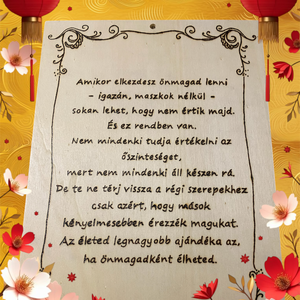 Amikor elkezdesz önmagad lenni
- igazán, maszkok nélkül -
sokan lehet, hogy nem értik majd.
És ez rendben van.
Nem mindenki tudja értékelni az
őszinteséget,
mert nem mindenki áll készen rá.
De te ne térj vissza a régi szerepekhez
csak azért, hogy mások
kényelmesebben érezzék magukat.
Az életed legnagyobb ajándéka az,
ha önmagadként élheted.